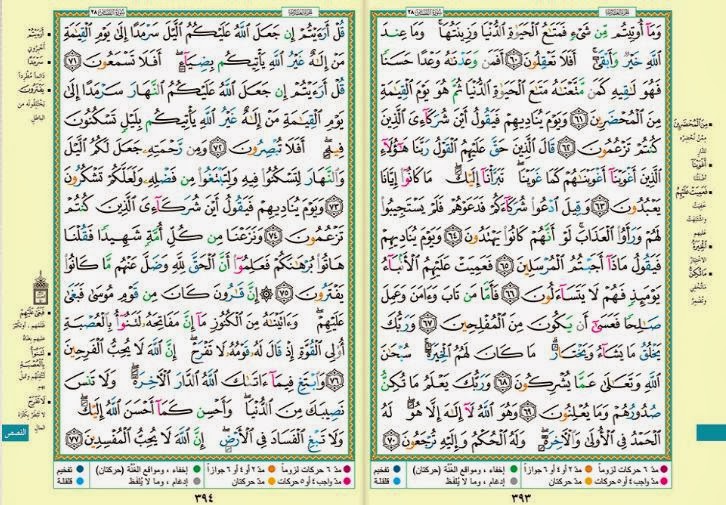 سُورَةُ القَصَصِ ٢٨
الجزء العشرون
وَمَآ أُوتِيتُم مِّن شَىْءٍ فَمَتَٰعُ ٱلْحَيَوٰةِ ٱلدُّنْيَا وَزِينَتُهَا ۚ وَمَا عِندَ
ٱللَّهِ خَيْرٌ وَأَبْقَىٰٓ ۚ أَفَلَا تَعْقِلُونَ ٦٠ أَفَمَن وَعَدْنَٰهُ وَعْدًا حَسَنًا
فَهُوَ لَٰقِيهِ كَمَن مَّتَّعْنَٰهُ مَتَٰعَ ٱلْحَيَوٰةِ ٱلدُّنْيَا ثُمَّ هُوَ يَوْمَ ٱلْقِيَٰمَةِ
مِنَ ٱلْمُحْضَرِينَ ٦١ وَيَوْمَ يُنَادِيهِمْ فَيَقُولُ أَيْنَ شُرَكَآءِىَ ٱلَّذِينَ
كُنتُمْ تَزْعُمُونَ ٦٢ قَالَ ٱلَّذِينَ حَقَّ عَلَيْهِمُ ٱلْقَوْلُ رَبَّنَا هَٰٓؤُلَآءِ
ٱلَّذِينَ أَغْوَيْنَآ أَغْوَيْنَٰهُمْ كَمَا غَوَيْنَا ۖ تَبَرَّأْنَآ إِلَيْكَ ۖ مَا كَانُوٓا۟ إِيَّانَا
يَعْبُدُونَ ٦٣ وَقِيلَ ٱدْعُوا۟ شُرَكَآءَكُمْ فَدَعَوْهُمْ فَلَمْ يَسْتَجِيبُوا۟
لَهُمْ وَرَأَوُا۟ ٱلْعَذَابَ ۚ لَوْ أَنَّهُمْ كَانُوا۟ يَهْتَدُونَ ٦٤ وَيَوْمَ يُنَادِيهِمْ
فَيَقُولُ مَاذَآ أَجَبْتُمُ ٱلْمُرْسَلِينَ ٦٥ فَعَمِيَتْ عَلَيْهِمُ ٱلْأَنۢبَآءُ
يَوْمَئِذٍ فَهُمْ لَا يَتَسَآءَلُونَ ٦٦ فَأَمَّا مَن تَابَ وَءَامَنَ وَعَمِلَ
صَٰلِحًا فَعَسَىٰٓ أَن يَكُونَ مِنَ ٱلْمُفْلِحِينَ ٦٧ وَرَبُّكَ
يَخْلُقُ مَا يَشَآءُ وَيَخْتَارُ ۗ مَا كَانَ لَهُمُ ٱلْخِيَرَةُ ۚ سُبْحَٰنَ
ٱللَّهِ وَتَعَٰلَىٰ عَمَّا يُشْرِكُونَ ٦٨ وَرَبُّكَ يَعْلَمُ مَا تُكِنُّ
صُدُورُهُمْ وَمَا يُعْلِنُونَ ٦٩ وَهُوَ ٱللَّهُ لَآ إِلَٰهَ إِلَّا هُوَ ۖ لَهُ
ٱلْحَمْدُ فِى ٱلْأُولَىٰ وَٱلْءَاخِرَةِ ۖ وَلَهُ ٱلْحُكْمُ وَإِلَيْهِ تُرْجَعُونَ ٧٠
مِنَ الْمُحْضَرِينَ
مِمَّن نُحْضِرُه
للنَّار
أَغْوَيْنَا
أضْلَلْنَا
فَعَمِيَتْ عَلَيْهِمُ
خَفِيَتْ
عليهم
الْخِيَرَةُ
الاختيار
مَا تُكِنُّ
ما تُخْفِي
وتُضْمِرُ
مدّ ٦ حركات لزوماً مدّ ٢ أو ٤ أو ٦ جوازاً إخفاء ، ومواقع الغُنَّة (حركتان) تفخيم
مدّ واجب ٤ أو ٥ حركات مدّ حركتان إدغام ، وما لا يُلفَظ قلقلة
٣٩٣
سُورَةُ القَصَصِ ٢٨
الجزء العشرون
قُلْ أَرَءَيْتُمْ إِن جَعَلَ ٱللَّهُ عَلَيْكُمُ ٱلَّيْلَ سَرْمَدًا إِلَىٰ يَوْمِ ٱلْقِيَٰمَةِ
مَنْ إِلَٰهٌ غَيْرُ ٱللَّهِ يَأْتِيكُم بِضِيَآءٍ ۖ أَفَلَا تَسْمَعُونَ ٧١
قُلْ أَرَءَيْتُمْ إِن جَعَلَ ٱللَّهُ عَلَيْكُمُ ٱلنَّهَارَ سَرْمَدًا إِلَىٰ
يَوْمِ ٱلْقِيَٰمَةِ مَنْ إِلَٰهٌ غَيْرُ ٱللَّهِ يَأْتِيكُم بِلَيْلٍ تَسْكُنُونَ
فِيهِ ۖ أَفَلَا تُبْصِرُونَ ٧٢ وَمِن رَّحْمَتِهِۦ جَعَلَ لَكُمُ ٱلَّيْلَ
وَٱلنَّهَارَ لِتَسْكُنُوا۟ فِيهِ وَلِتَبْتَغُوا۟ مِن فَضْلِهِۦ وَلَعَلَّكُمْ تَشْكُرُونَ
٧٣ وَيَوْمَ يُنَادِيهِمْ فَيَقُولُ أَيْنَ شُرَكَآءِىَ ٱلَّذِينَ كُنتُمْ
تَزْعُمُونَ ٧٤ وَنَزَعْنَا مِن كُلِّ أُمَّةٍ شَهِيدًا فَقُلْنَا
هَاتُوا۟ بُرْهَٰنَكُمْ فَعَلِمُوٓا۟ أَنَّ ٱلْحَقَّ لِلَّهِ وَضَلَّ عَنْهُم مَّا كَانُوا۟
يَفْتَرُونَ ٧٥ ۞ إِنَّ قَٰرُونَ كَانَ مِن قَوْمِ مُوسَىٰ فَبَغَىٰ
عَلَيْهِمْ ۖ وَءَاتَيْنَٰهُ مِنَ ٱلْكُنُوزِ مَآ إِنَّ مَفَاتِحَهُۥ لَتَنُوٓأُ بِٱلْعُصْبَةِ
أُو۟لِى ٱلْقُوَّةِ إِذْ قَالَ لَهُۥ قَوْمُهُۥ لَا تَفْرَحْ ۖ إِنَّ ٱللَّهَ لَا يُحِبُّ ٱلْفَرِحِينَ
٧٦ وَٱبْتَغِ فِيمَآ ءَاتَىٰكَ ٱللَّهُ ٱلدَّارَ ٱلْءَاخِرَةَ ۖ وَلَا تَنسَ
نَصِيبَكَ مِنَ ٱلدُّنْيَا ۖ وَأَحْسِن كَمَآ أَحْسَنَ ٱللَّهُ إِلَيْكَ ۖ
وَلَا تَبْغِ ٱلْفَسَادَ فِى ٱلْأَرْضِ ۖ إِنَّ ٱللَّهَ لَا يُحِبُّ ٱلْمُفْسِدِينَ ٧٧
أَرَءَيْتُمْ
أخبروني
سَرْمَدًا
دائماً مُطَّرِداً
يَفْتَرُونَ
يَختلِقُونه من
الباطل
فَبَغَىٰ عَلَيْهِمْ
ظلمهم ، أو تكبّر
عليهم بغناه
لَتَنُوأُ
بِالْعُصْبَةِ
لَتُثْقِلُهُم وتميل
بهم
لَا تَفْرَحْ
لا تَبْطَر بكثرة
المال
القصص
مدّ ٦ حركات لزوماً مدّ ٢ أو ٤ أو ٦ جوازاً إخفاء ، ومواقع الغُنَّة (حركتان) تفخيم
مدّ واجب ٤ أو ٥ حركات مدّ حركتان إدغام ، وما لا يُلفَظ قلقلة
٣٩٤